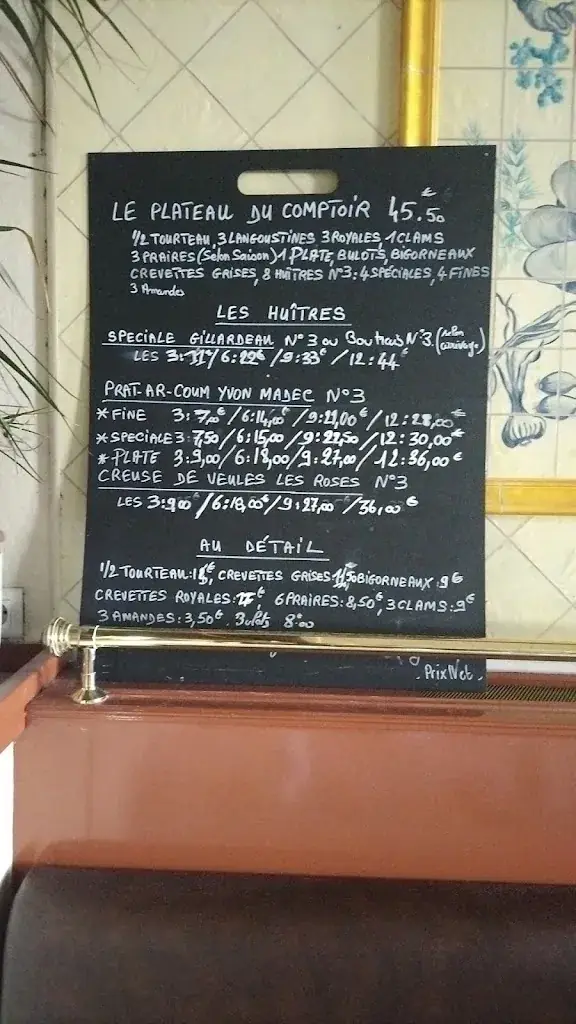 LE PLATEAU DU COMPTOIR 45.50€
1/2 TOURTEAU, 3 LANGOUSTINES 3 ROYALES, 1 CLAMS
3 PRAIRES (Selon Saison) 1 PLATE, BULOTS, BIGORNEAUX
CREVETTES GRISES, 8 HUÎTRES N°3: 4 SPÉCIALES, 4 FINES
3 Amandes
LES HUÎTRES
SPECIALE GILLARDEAU N°3 ou N°3 (selon arrivage)
LES 3: 11€/6:22€/9:33€/12:44€
PRAT-AR-COUM YVON MADEC N°3
*FINE 3: 7,00€/6:14,00€/9:21,00€/12:28,00€
*SPECIALE 3: 7,50/6:15,00/9:22,50/12:30,00€
*PLATE 3:9,00/6:18,00/9:27,00/12:36,00€
CREUSE DE VEULES LES ROSES N°3
LES 3:9,00€/6:18,00€/9:27,00/36,00€
AU DÉTAIL
1/2 TOURTEAU: CREVETTES GRISES BIGORNEAUX:9€
CREVETTES ROYALES: 6 PRAIRES:8,50€, 3 CLAMS:9€
3 AMANDES:3,50€. 8€00
. Prix Net.